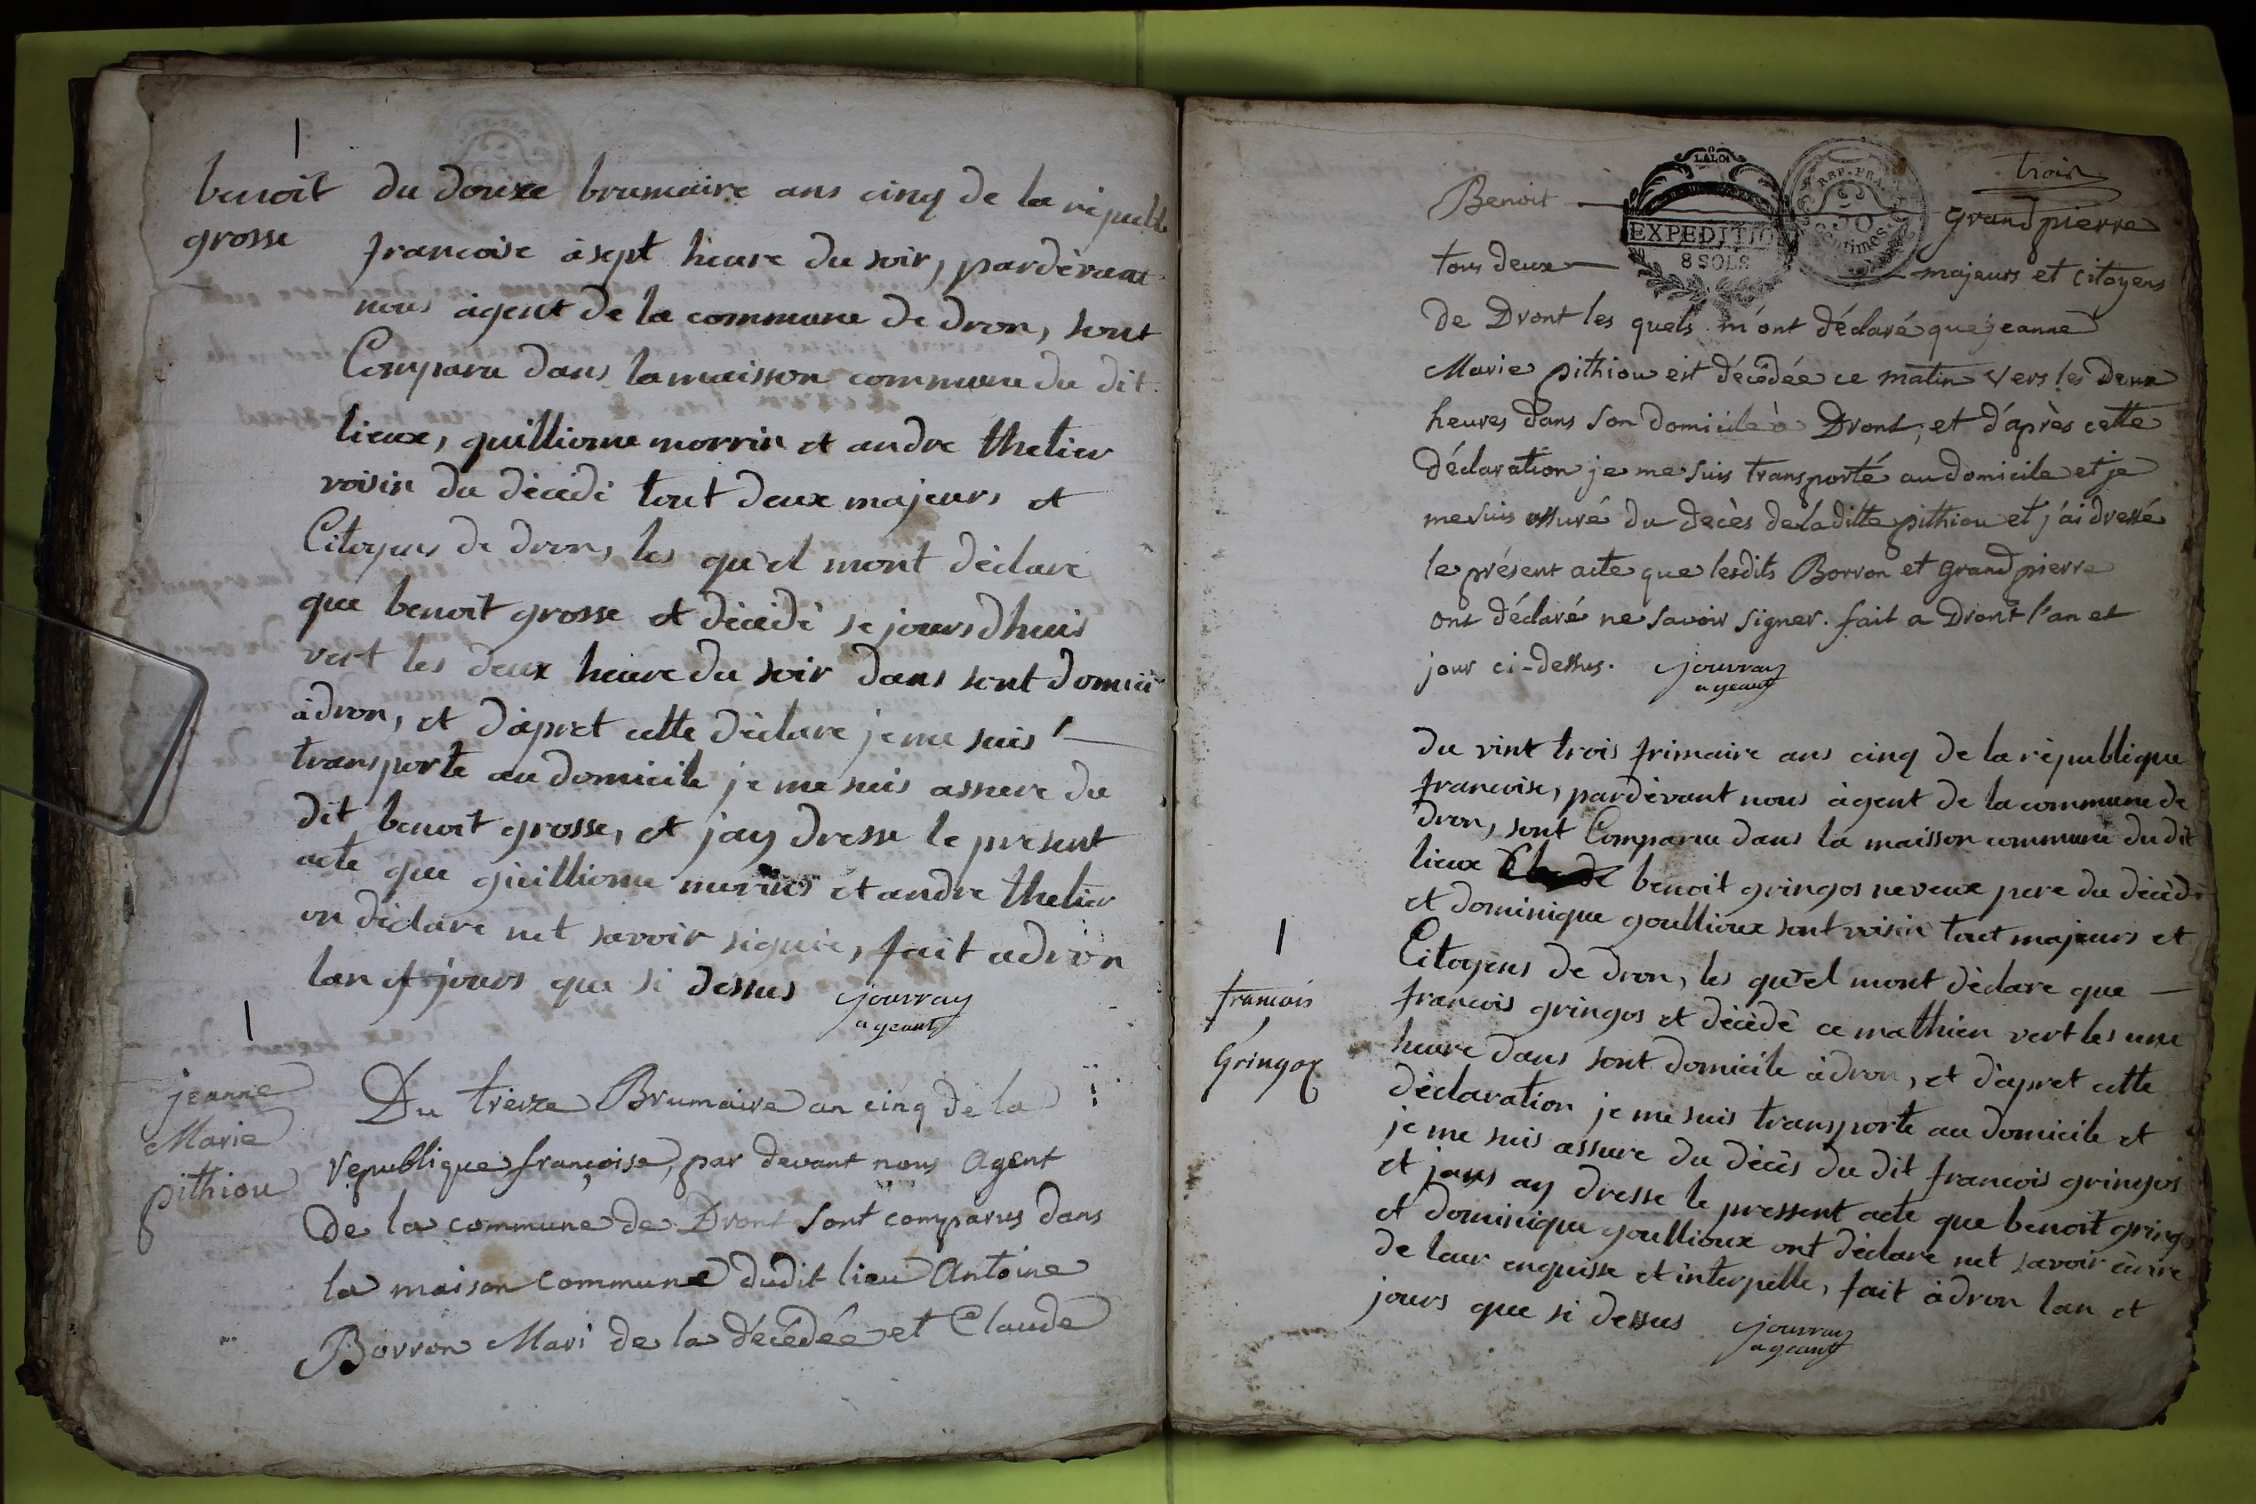 benoit
grosse
du douxe brumaire ans cinq de la republi
francoise à sept heure du soir, pardèvant
nous àgent de la commune de dron, sont
Comparu dans la maisson commune du dit
lieux, quilliome morrin et andre thelier
voisin du dècèdè tout deux majeurs et
Citoyens de dron, les qu'el mont dèclare
que benoit grosse et dècèdè se jours dhuis
vert les deux heure du soir dans sont domici
àdron, et d'àpret cette dèclare je me suis
transporte au domicile je me suis assure du
dit benoit grosse, et j'ay dresse le present
acte que guilliome morins et andre thelier
on dèclare net savoir signie, fait adron
lan et jours que si dessus jouvray
ageant
jeanne
Marie
pithiou
Du treize Brumaire an cinq de la
republique françoise, par devant nous Agent
de la commune de Dront sont comparus dans
la maison commune dudit lieu Antoine
Borron Mari de la décédée et Claude
trois
Benoit grand pierre
LA LOI
EXPEDITIO
8 SOLS
REP. FRA
50
centimes
tous deux majeurs et citoyens
de Dront les quels m'ont déclaré que jeanne
Marie pithiou est décédée ce matin vers les deux
heures dans son domicile à Dront, et d'après cette
déclaration je me suis transporté au domicile et je
me suis assuré du decès de la ditte pithiou et j'ai dressé
le présent acte que lesdits Borron et grand pierre
ont déclaré ne savoir signer. fait a Dront l'an et
jour ci-dessus. jouvray
ageant
du vint trois frimaire ans cinq de la rèpublique
francoise, pardèvant nous àgent de la commune de
dron, sont Comparu dans la maisson commune du dit
lieux benoit gringos neveux pere du dècèdè
et dominique goullioux sont voisin tout majeurs et
Citoyens de dron, les qu'el mont dèclare que
francois
Gringox
francois gringos et dècèdè ce mathien vert les une
heure dans sont domicile àdron, et d'apret cette
dèclaration je me suis transporte au domicile et
je me suis assure du dècès du dit francois gringos
et jays ay dresse le pressent acte que benoit gringos
et dominique goullioux ont dèclare net savoir ècrire
de leur enquisse et interpelle, fait àdron lan et
jours que si dessus jouvray
ageant